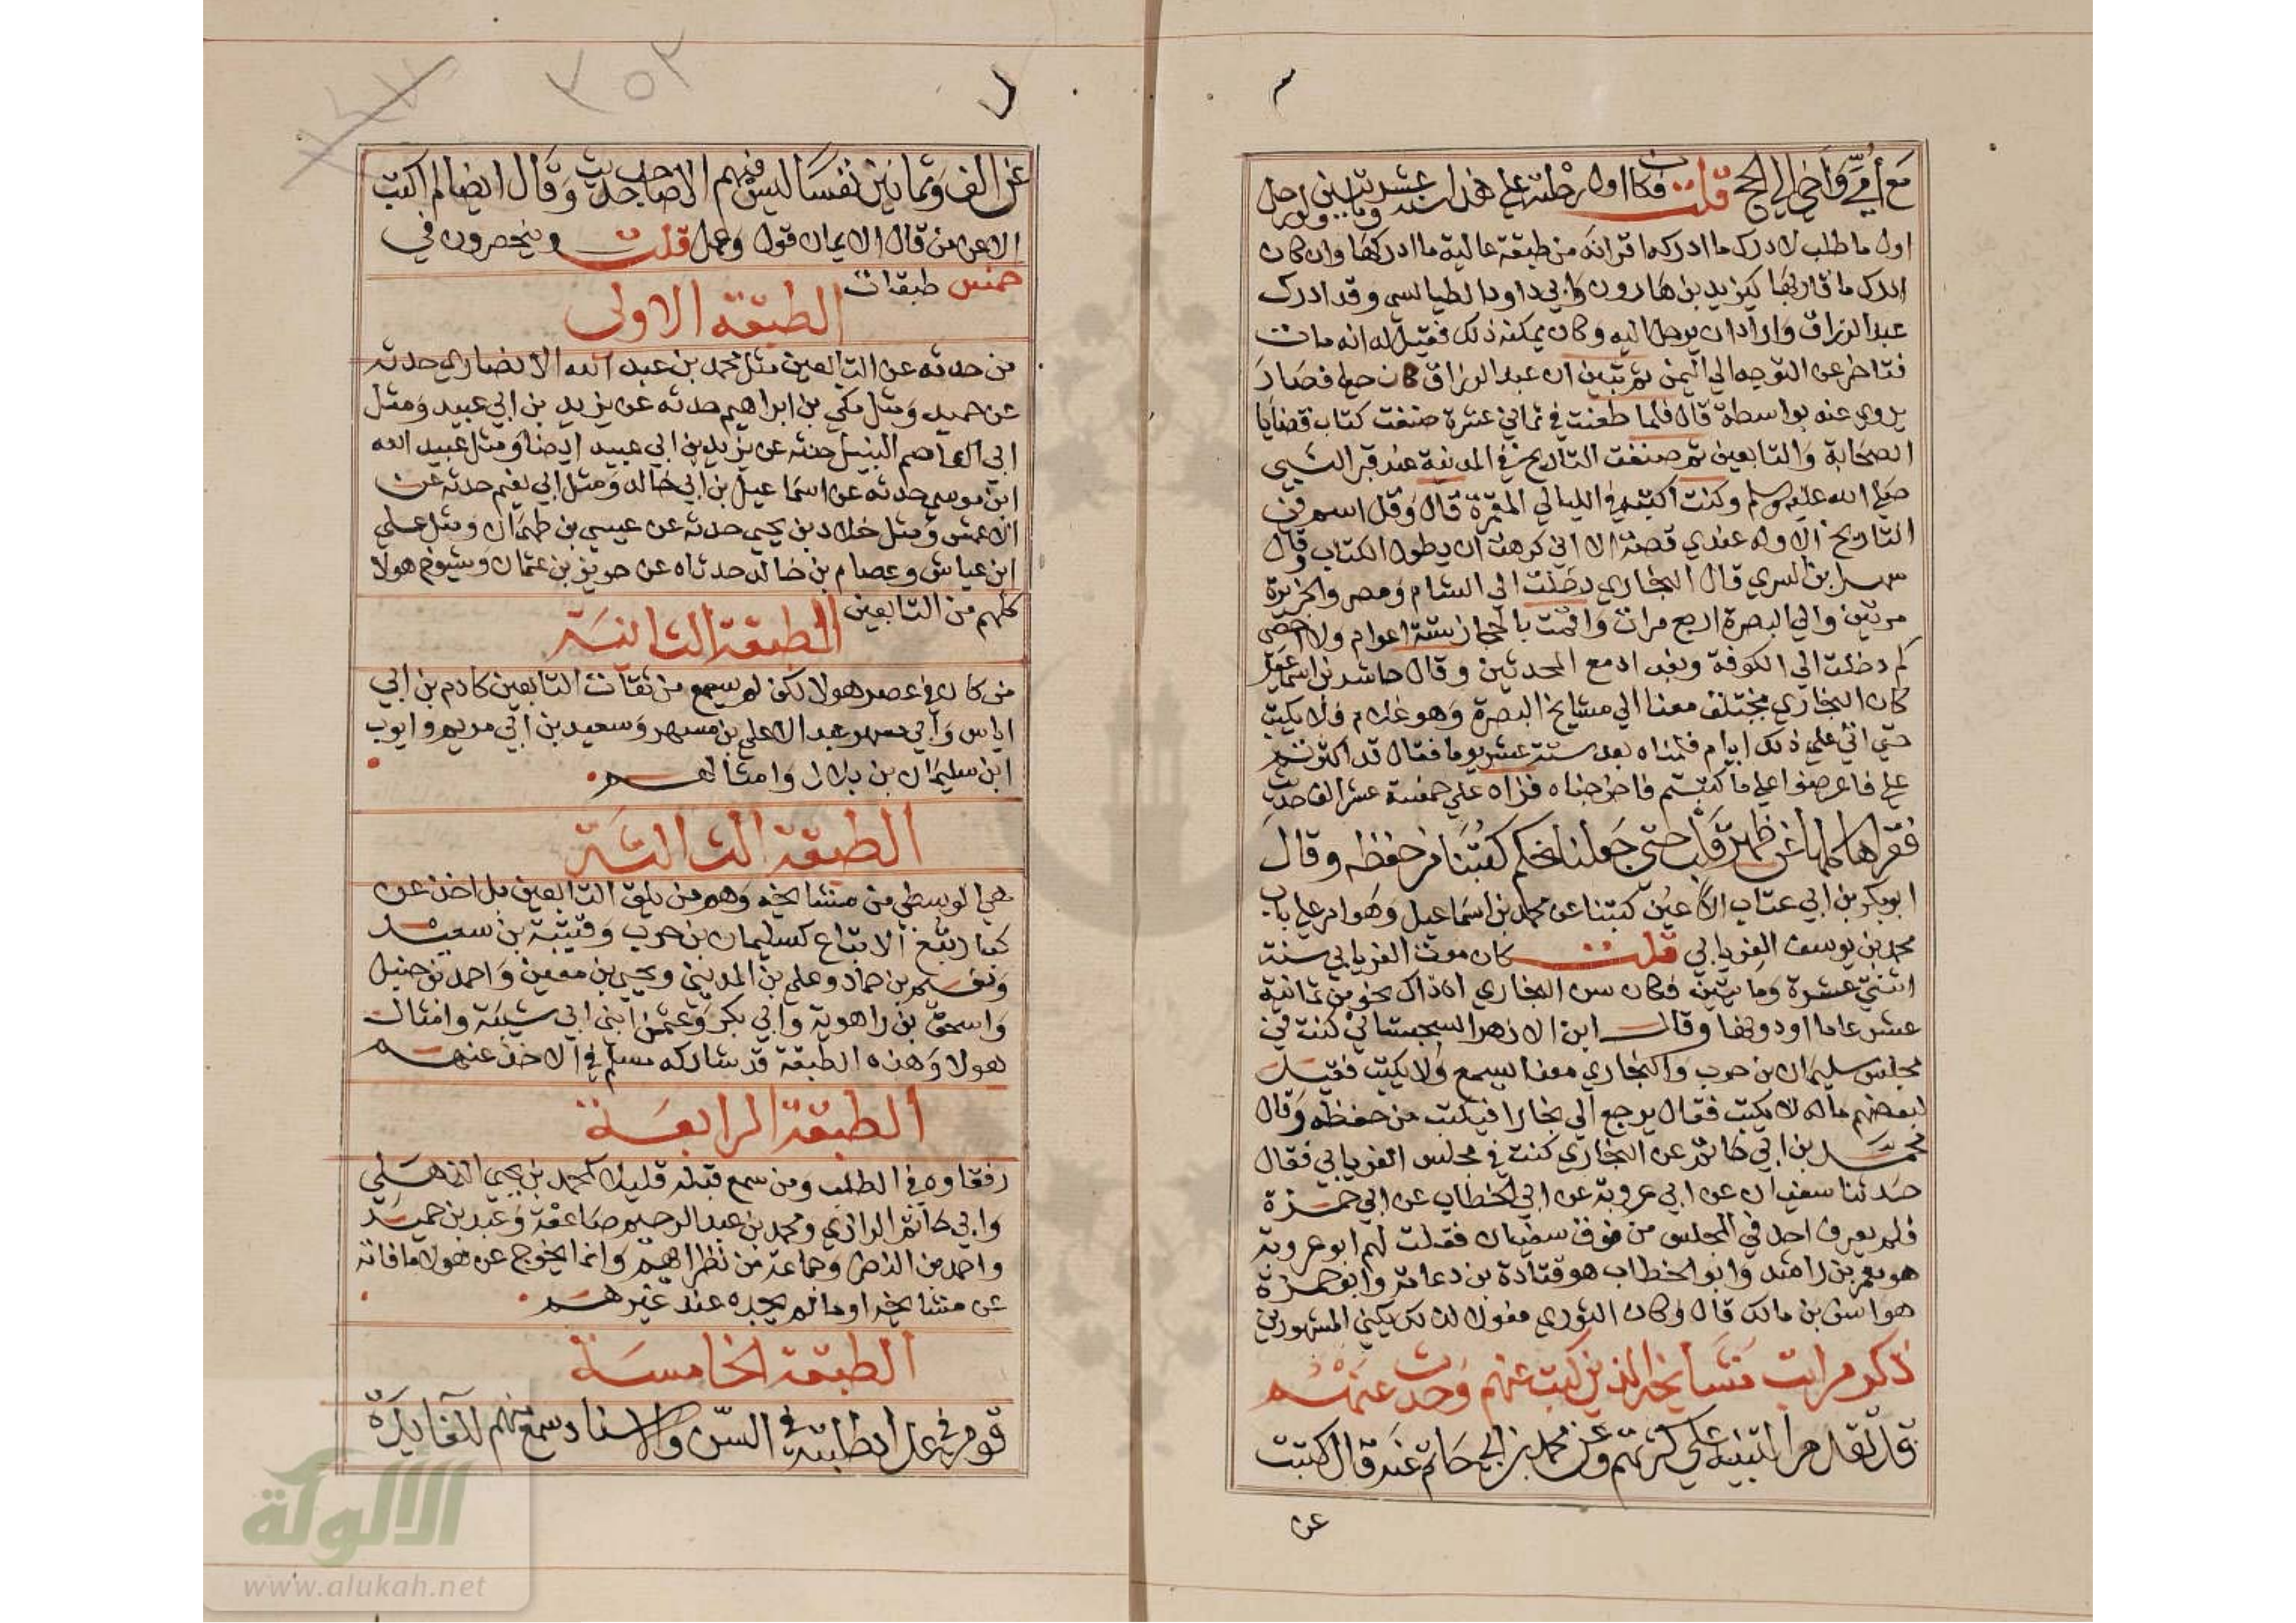 مع أمي وأخي إلى الحج قلت فكان اول رحلته علي هذا سنة عشر ومايتين ولو رحل
اول ما طلب لادرك ما ادركه اقرانه من طبقة عالية ما ادركها وان كان
ادرك ما قاربها كيزيد بن هارون وابي داود الطيالسي وقد ادرك
عبد الرزاق واراد ان يرحل اليه وكان يمكنه ذلك فقيل له انه مات
فتاخر عن التوجه الي اليمن ثم تبين ان عبد الرزاق كان حيا فصار
يروي عنه بواسطة قال فلما طعنت في ثماني عشرة صنفت كتاب قضايا
الصحابة والتابعين ثم صنفت التاريخ في المدينة عند قبر النبي
صلي الله عليه وسلم وكنت اكتبه في الليالي المقمرة قال وقل اسم في
التاريخ الا وله عندي قصة الا اني كرهت ان يطول الكتاب وقال
سهل بن السري قال البخاري دخلت الي الشام ومصر والجزيرة
مرتين والي البصرة اربع مرات واقمت بالحجاز ستة اعوام ولا احصي
كم دخلت الي الكوفة وبغداد مع المحدثين وقال حاشد بن اسماعيل
كان البخاري يختلف معنا الي مشايخ البصرة وهو غلام فلا يكتب
حتي اتي علي ذلك ايام فلمناه بعد ستة عشر يوما فقال قد اكثرتم
علي فاعرضوا علي ما كتبتم فاخرجناه فزاد علي خمسة عشر الف حديث
فقراها كلها عن ظهر قلب حتي جعلنا نحكم كتبنا من حفظه وقال
ابو بكر بن ابي عتاب الاعين كتبنا عن محمد بن اسماعيل وهو امرد علي باب
محمد بن يوسف الفريابي قلت كان موت الفريابي سنة
اثنتي عشرة ومايتين فكان سن البخاري اذ ذاك نحو من ثمانية
عشر عاما او دونها وقال ابن الازهر السجستاني كنت في
مجلس سليمان بن حرب والبخاري معنا يسمع ولا يكتب فقيل
لبعضهم ماله لا يكتب فقال يرجع الي بخارا فيكتب من حفظه وقال
محمد بن ابي حاتم عن البخاري كنت في مجلس الفريابي فقال
حدثنا سفيان عن ابي عروبة عن ابي الخطاب عن ابي حمزة
فلم يعرف احد في المجلس من فوق سفيان فقلت لهم ابو عروبة
هو معمر بن راشد وابو الخطاب هو قتادة بن دعامة وابو حمزة
هو انس بن مالك قال وكان الثوري فعولا لذلك يكني المشهورين
ذكر مراتب مشايخه الذين كتب عنهم وحدث عنهم
قد تقدم التنبيه علي كثرتهم وعن محمد بن ابي حاتم عنه قال كتبت
عن
عن الف وثمانين نفسا ليس فيهم الا صاحب حديث وقال ايضا لم اكتب
الا عن من قال الايمان قول وعمل قلت وينحصرون في
خمس طبقات
الطبقة الاولى
من حدثه عن التابعين مثل محمد بن عبد الله الانصاري حدثه
عن حميد ومثل مكي بن ابراهيم حدثه عن يزيد بن ابي عبيد ومثل
ابي العاصم النبيل حدثه عن يزيد بن ابي عبيد ايضا ومثل عبيد الله
ابن موسي حدثه عن اسماعيل بن ابي خالد ومثل ابي نعيم حدثه عن
الاعمش ومثل خلاد بن يحيي حدثه عن عيسي بن طهمان ومثل علي
ابن عياش وعصام بن خالد حدثاه عن حريز بن عثمان وشيوخ هولا
كلهم من التابعين
الطبقة الثانية
من كان في عصر هولا لكن لم يسمع من ثقات التابعين كادم بن ابي
اياس وابي مسهر عبد الاعلي بن مسهر وسعيد بن ابي مريم وايوب
ابن سليمان بن بلال وامثالهم
الطبقة الثالثة
هي الوسطي من مشايخه وهم من يلق التابعين بل اخذ عن
كبار تبع الاتباع كسليمان بن حرب وقتيبة بن سعيد
ونعيم بن حماد وعلي بن المديني ويحيي بن معين واحمد بن حنبل
واسحق بن راهوية وابي بكر وعثمن ابني ابي شيبة وامثال
هولا وهذه الطبقة قد شاركه مسلم في الاخذ عنهم
الطبقة الرابعة
رفقاوه في الطلب ومن سمع قبله قليلا كمحمد بن يحيي الذهلي
وابي حاتم الرازي ومحمد بن عبد الرحيم صاعقة وعبد بن حميد
واحمد بن النضر وجماعة من نظرايهم وانما يخرج عن هولا ما فاته
عن مشايخه او ما لم يجده عند غيرهم
الطبقة الخامسة
قوم في عداد طلبته في السن والاسناد سمع منهم للفايدة
الألوكة
www.alukah.net